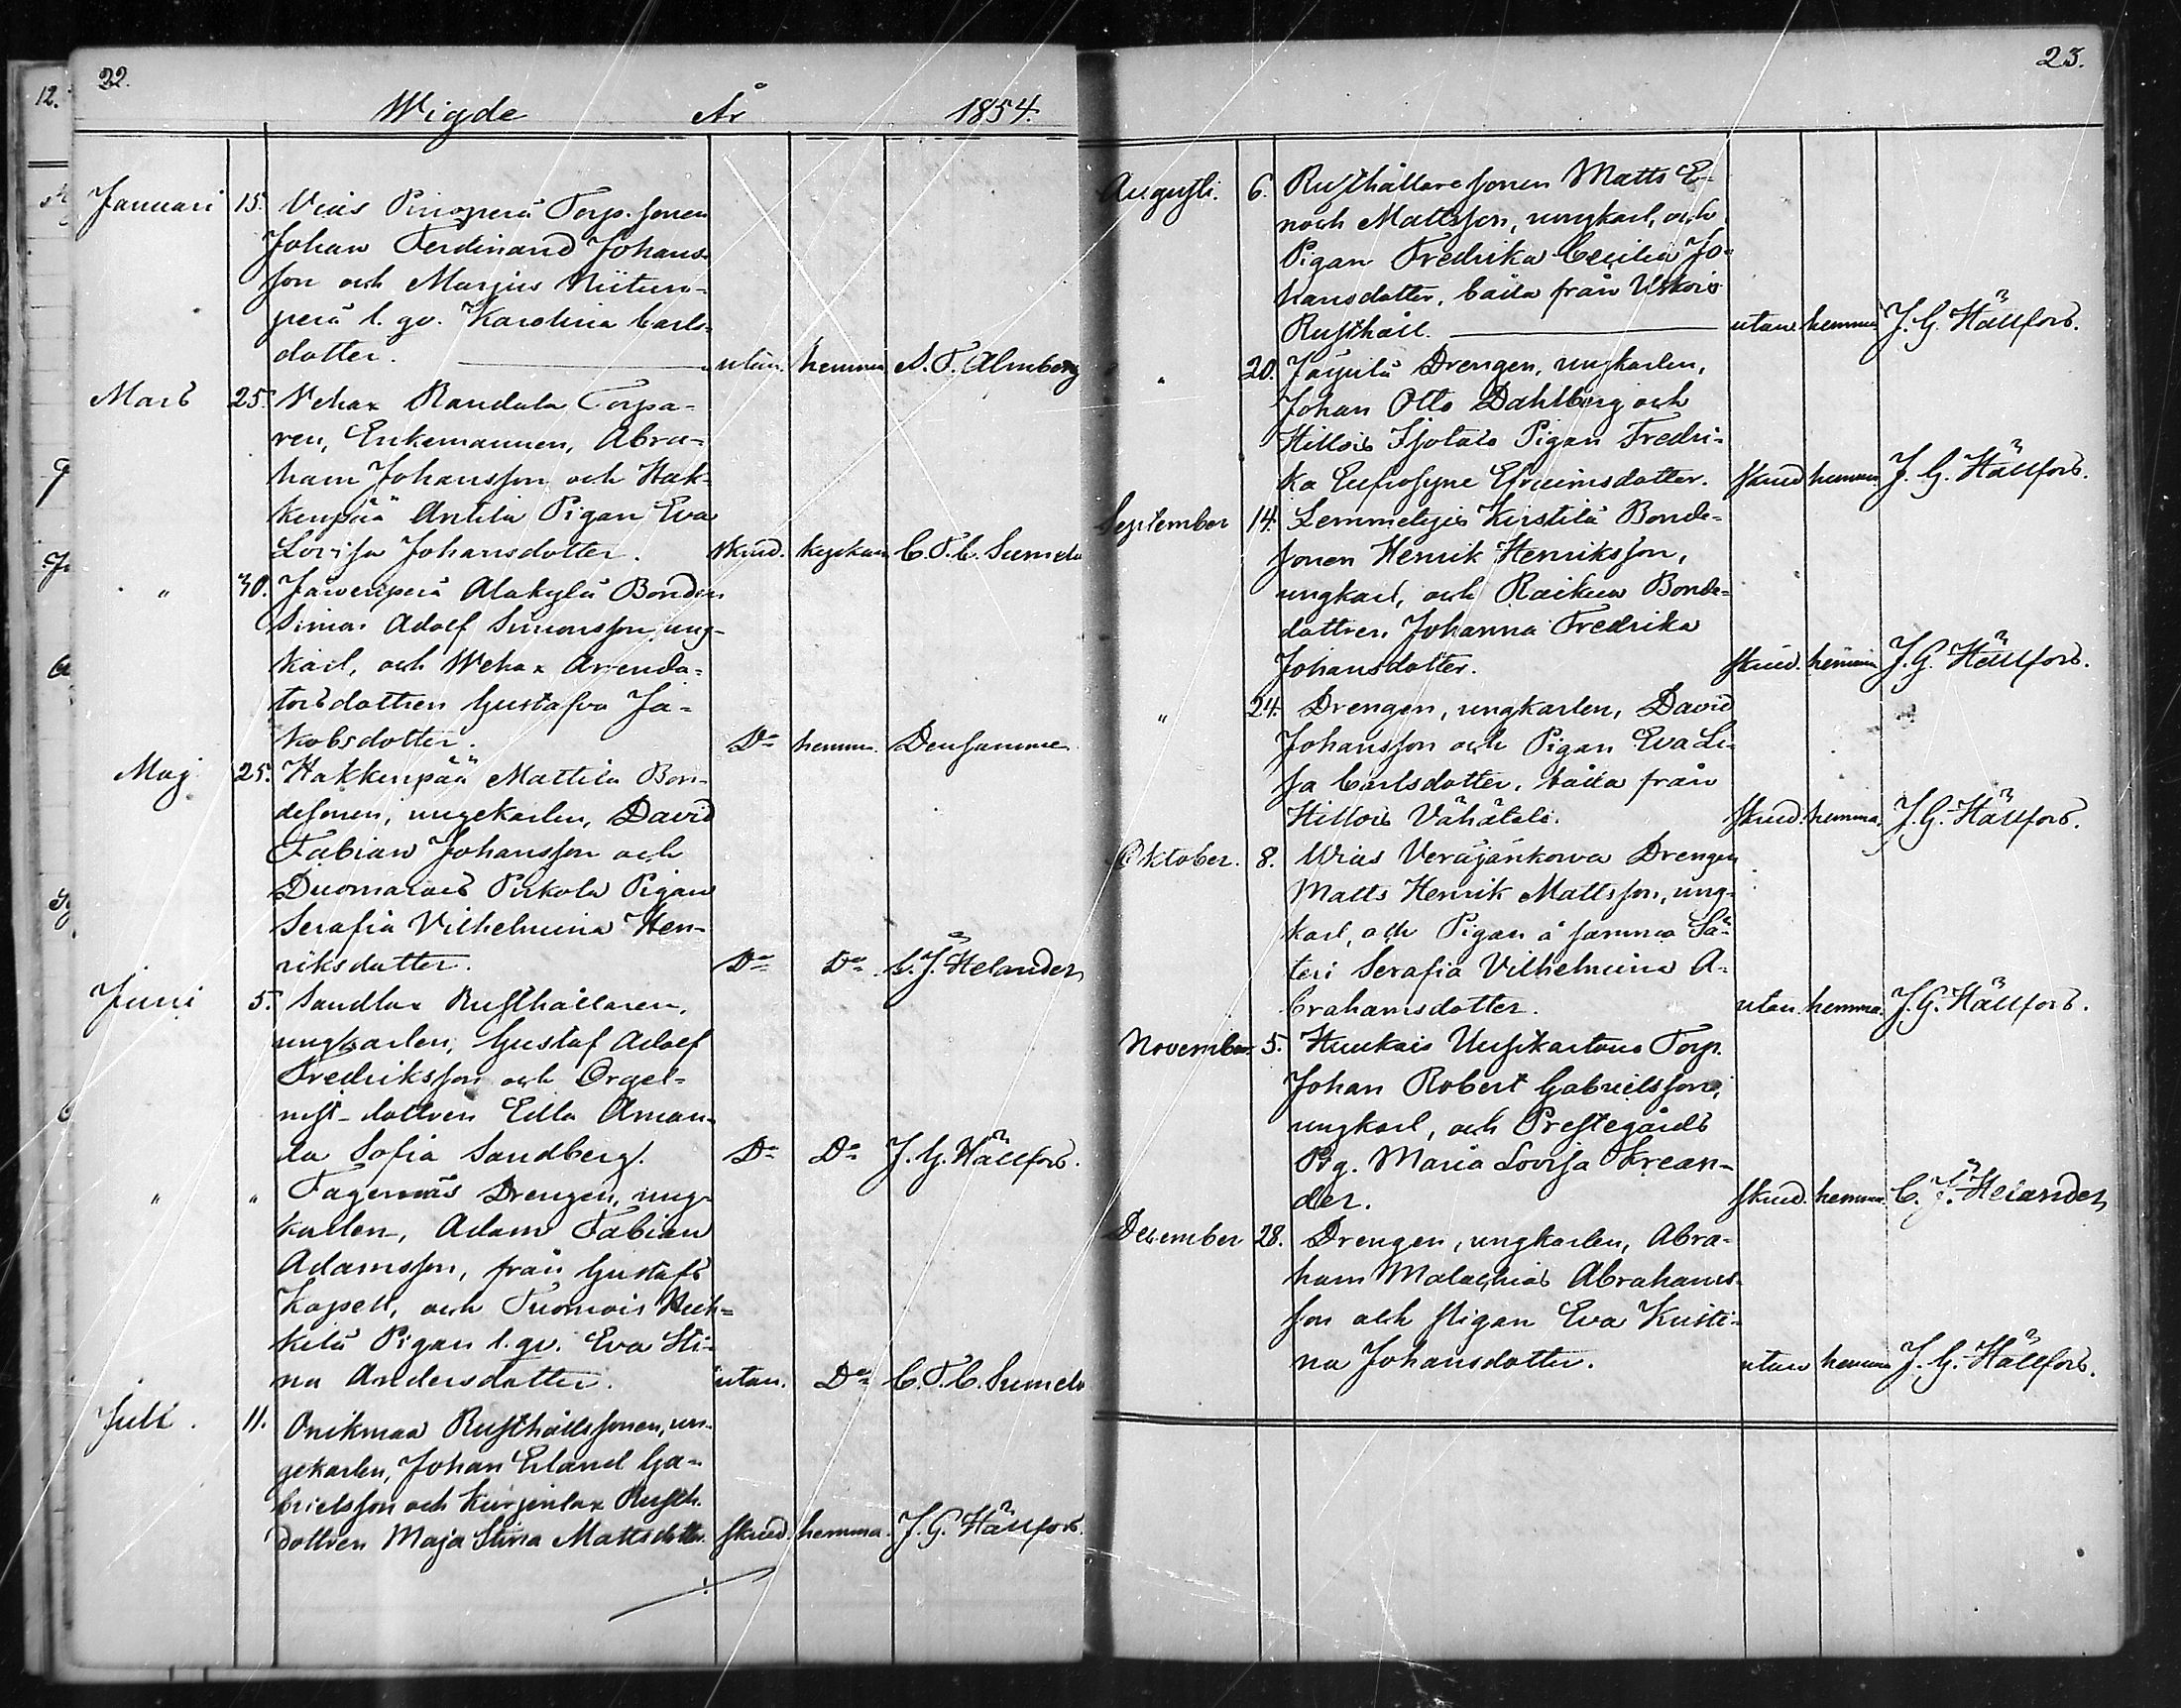 22.
Wigde År 1854.
Januari 15. Viais Torp. sonen
Johan Ferdinand Johans-
son och Marjus Niitun-
perä l. qv. Karolina Carls-
dotter. utan. hemma A. F. Almberg
Mars 25. Vehax Randala Torpa-
ren, Enkemannen, Abra-
ham Johansson och Hak-
kenpää Antila Pigan Eva
Lovisa Johansdotter. skud. C. F. C. Sumeli
" 30. Järvenperä Alakylä Bonden
Simon Adolf Simonsson, ung-
karl, och Wehax Arenda-
torsdottren Gustafva Ja-
kobsdotter. Do hemma. Densamme
Maj 25. Hakkenpää Mattila Bon-
desonen, ungekarlen, David
Fabian Johansson och
Pirkola Pigan
Serafia Vilhelmina Hen-
riksdotter. Do Do C. J. Helander
Juni 5. Sandlax Rusthållaren,
ungkarlen, Gustaf Adolf
Fredriksson och Orgel-
nist-dottren Edla Aman-
da Sofia Sandberg. Do Do J. G. Hällfors.
" " Tagernäs Drengen, ung-
karlen, Adam Fabian
Adamsson, från Gustafs
Kapell, och Tuomois Heik-
kilä Pigan l. qv. Eva Sti-
na Andersdotter. utan. Do C. F. C. Sumeli
Juli. 11. Anikmaa Rusthållssonen, un-
gekarlen, Johan Erland Ga-
brielsson och Kurjenlax Rusth.
dottren Maja Stina Mattsdotter. skud. hemma. J. G. Hällfors.
23.
Augusti. 6. Rusthållaresonen Matts E-
noch Mattsson, ungkarl, och
Pigan Fredrika Cecilia Jo-
hansdotter, båda från Uskois
Rusthåll. utan hemma J. G. Hällfors.
" 20. Järppilä Drengen, ungkarlen,
Johan Otto Dahlberg och
Hillois Isotalo Pigan Fredri-
ka Eufrosyne Efraimsdotter. skud hemma. J. G. Hällfors.
September 14. Lemmetyis Kirstilä Bonde-
sonen Henrik Henriksson,
ungkarl, och Raikua Bonde-
dottren Johanna Fredrika
Johansdotter. skud. hemma J. G. Hällfors.
" 24. Drengen, ungkarlen, David
Johansson och Pigan Eva Li-
sa Carlsdotter, båda från
Hillois Vähätalo. skud. hemma. J. G. Hällfors.
Oktober. 8. Wias Veräjänkorva Drengen
Matts Henrik Mattsson, ung-
karl, och Pigan å samma Sä-
teri Serafia Vilhelmina A-
brahamsdotter. utan. hemma. J. G. Hällfors.
November 5. Torp.
Johan Robert Gabrielsson,
ungkarl, och Prestegårds
Pig. Maria Lovisa Krean-
der. skud. hemma. C. J. Helander
December 28. Drengen, ungkarlen, Abra-
ham Malachias Abrahams-
son och pigan Eva Kristi-
na Johansdotter. utan hemma J. G. Hällfors.